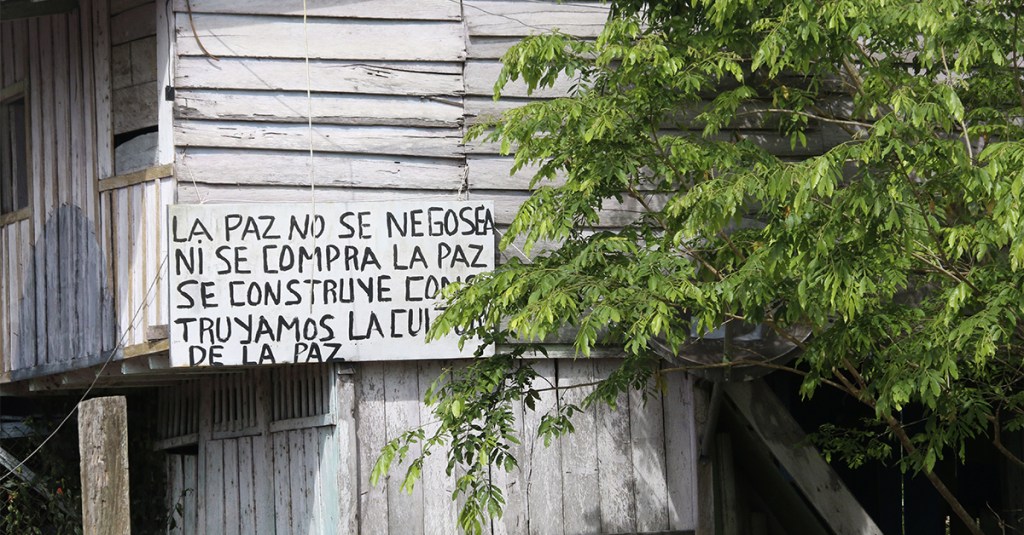 LA PAZ NO SE NEGOSEA
NI SE COMPRA LA PAZ
SE CONSTRUYE CONS
TRUYAMOS LA CULTURA
DE LA PAZ